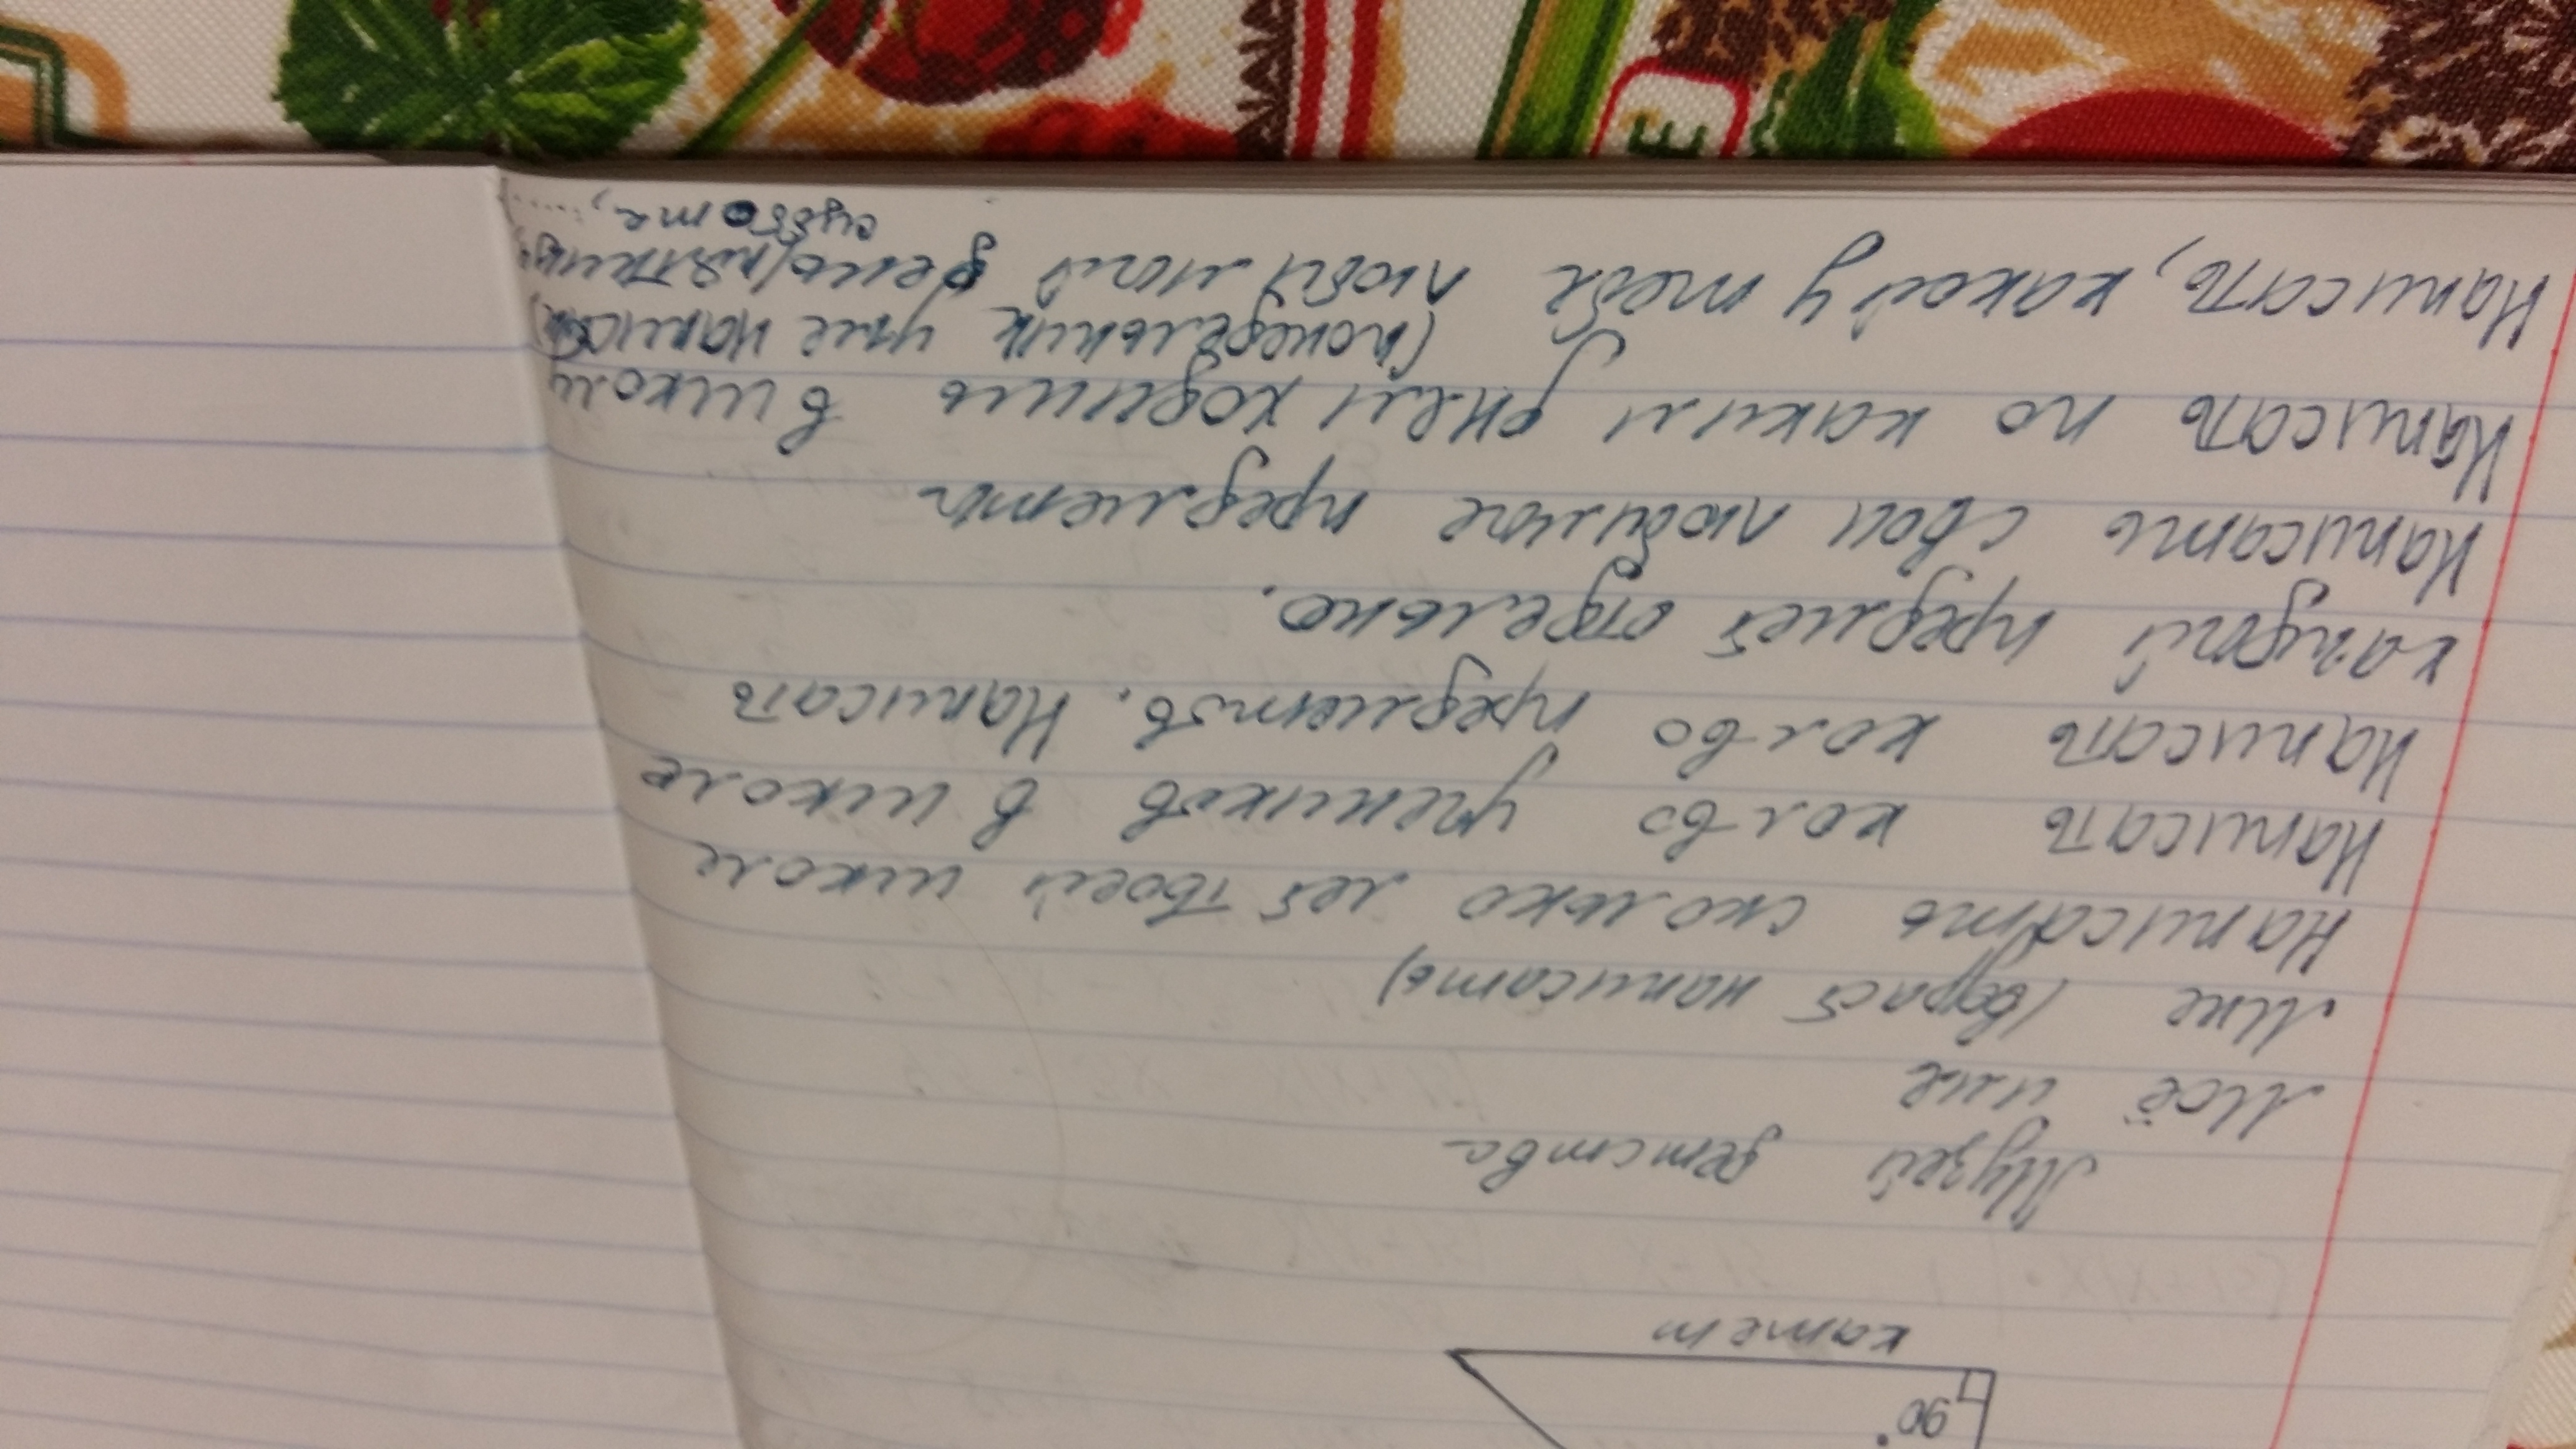 90°
катет
Музей детства
Моё имя
Мне (возраст написать)
Написать сколько лет твоей школе
Написать кол-во учеников в школе
Написать кол-во предметов. Написать
каждый предмет отдельно.
Написать свои любимые предметы
Написать по каким дням ходишь в школу
(понедельник уже написан)
Написать, какой у тебя любимый день/пятницу,
суббота,